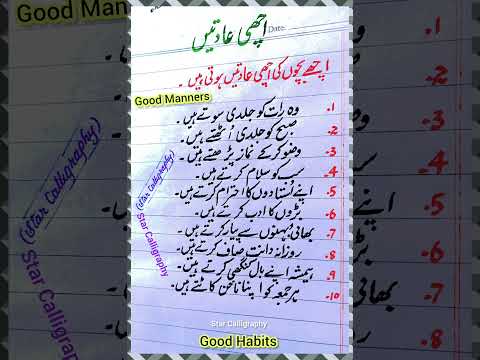 Good Manners
Date
اچھی عادتیں
اچھے بچوں کی اچھی عادتیں ہوتی ہیں۔
Good Manners
1۔ وہ رات کو جلدی سوتے ہیں۔
2۔ صبح کو جلدی اُٹھتے ہیں۔
3۔ وضو کر کے نماز پڑھتے ہیں۔
4۔ سب کو سلام کرتے ہیں۔
5۔ اپنے اُستادوں کا احترام کرتے ہیں۔
6۔ بڑوں کا ادب کرتے ہیں۔
7۔ بھائی بہنوں سے پیار کرتے ہیں۔
8۔ روزانہ دانت صاف کرتے ہیں۔
9۔ ہمیشہ اپنے بال کنگھی کرتے ہیں۔
10۔ ہر جمعہ کو اپنا ناخن کاٹتے ہیں۔
(Star Calligraphy)
Star Calligraphy
Star Calligraphy
Good Habits